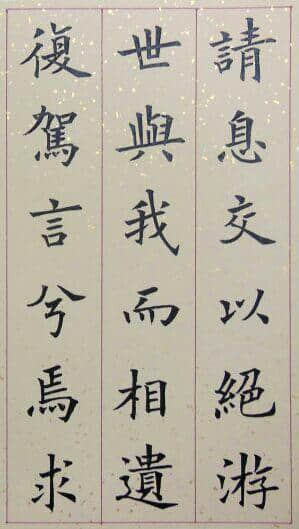 請息交以絕游
世與我而相遺
復駕言兮焉求